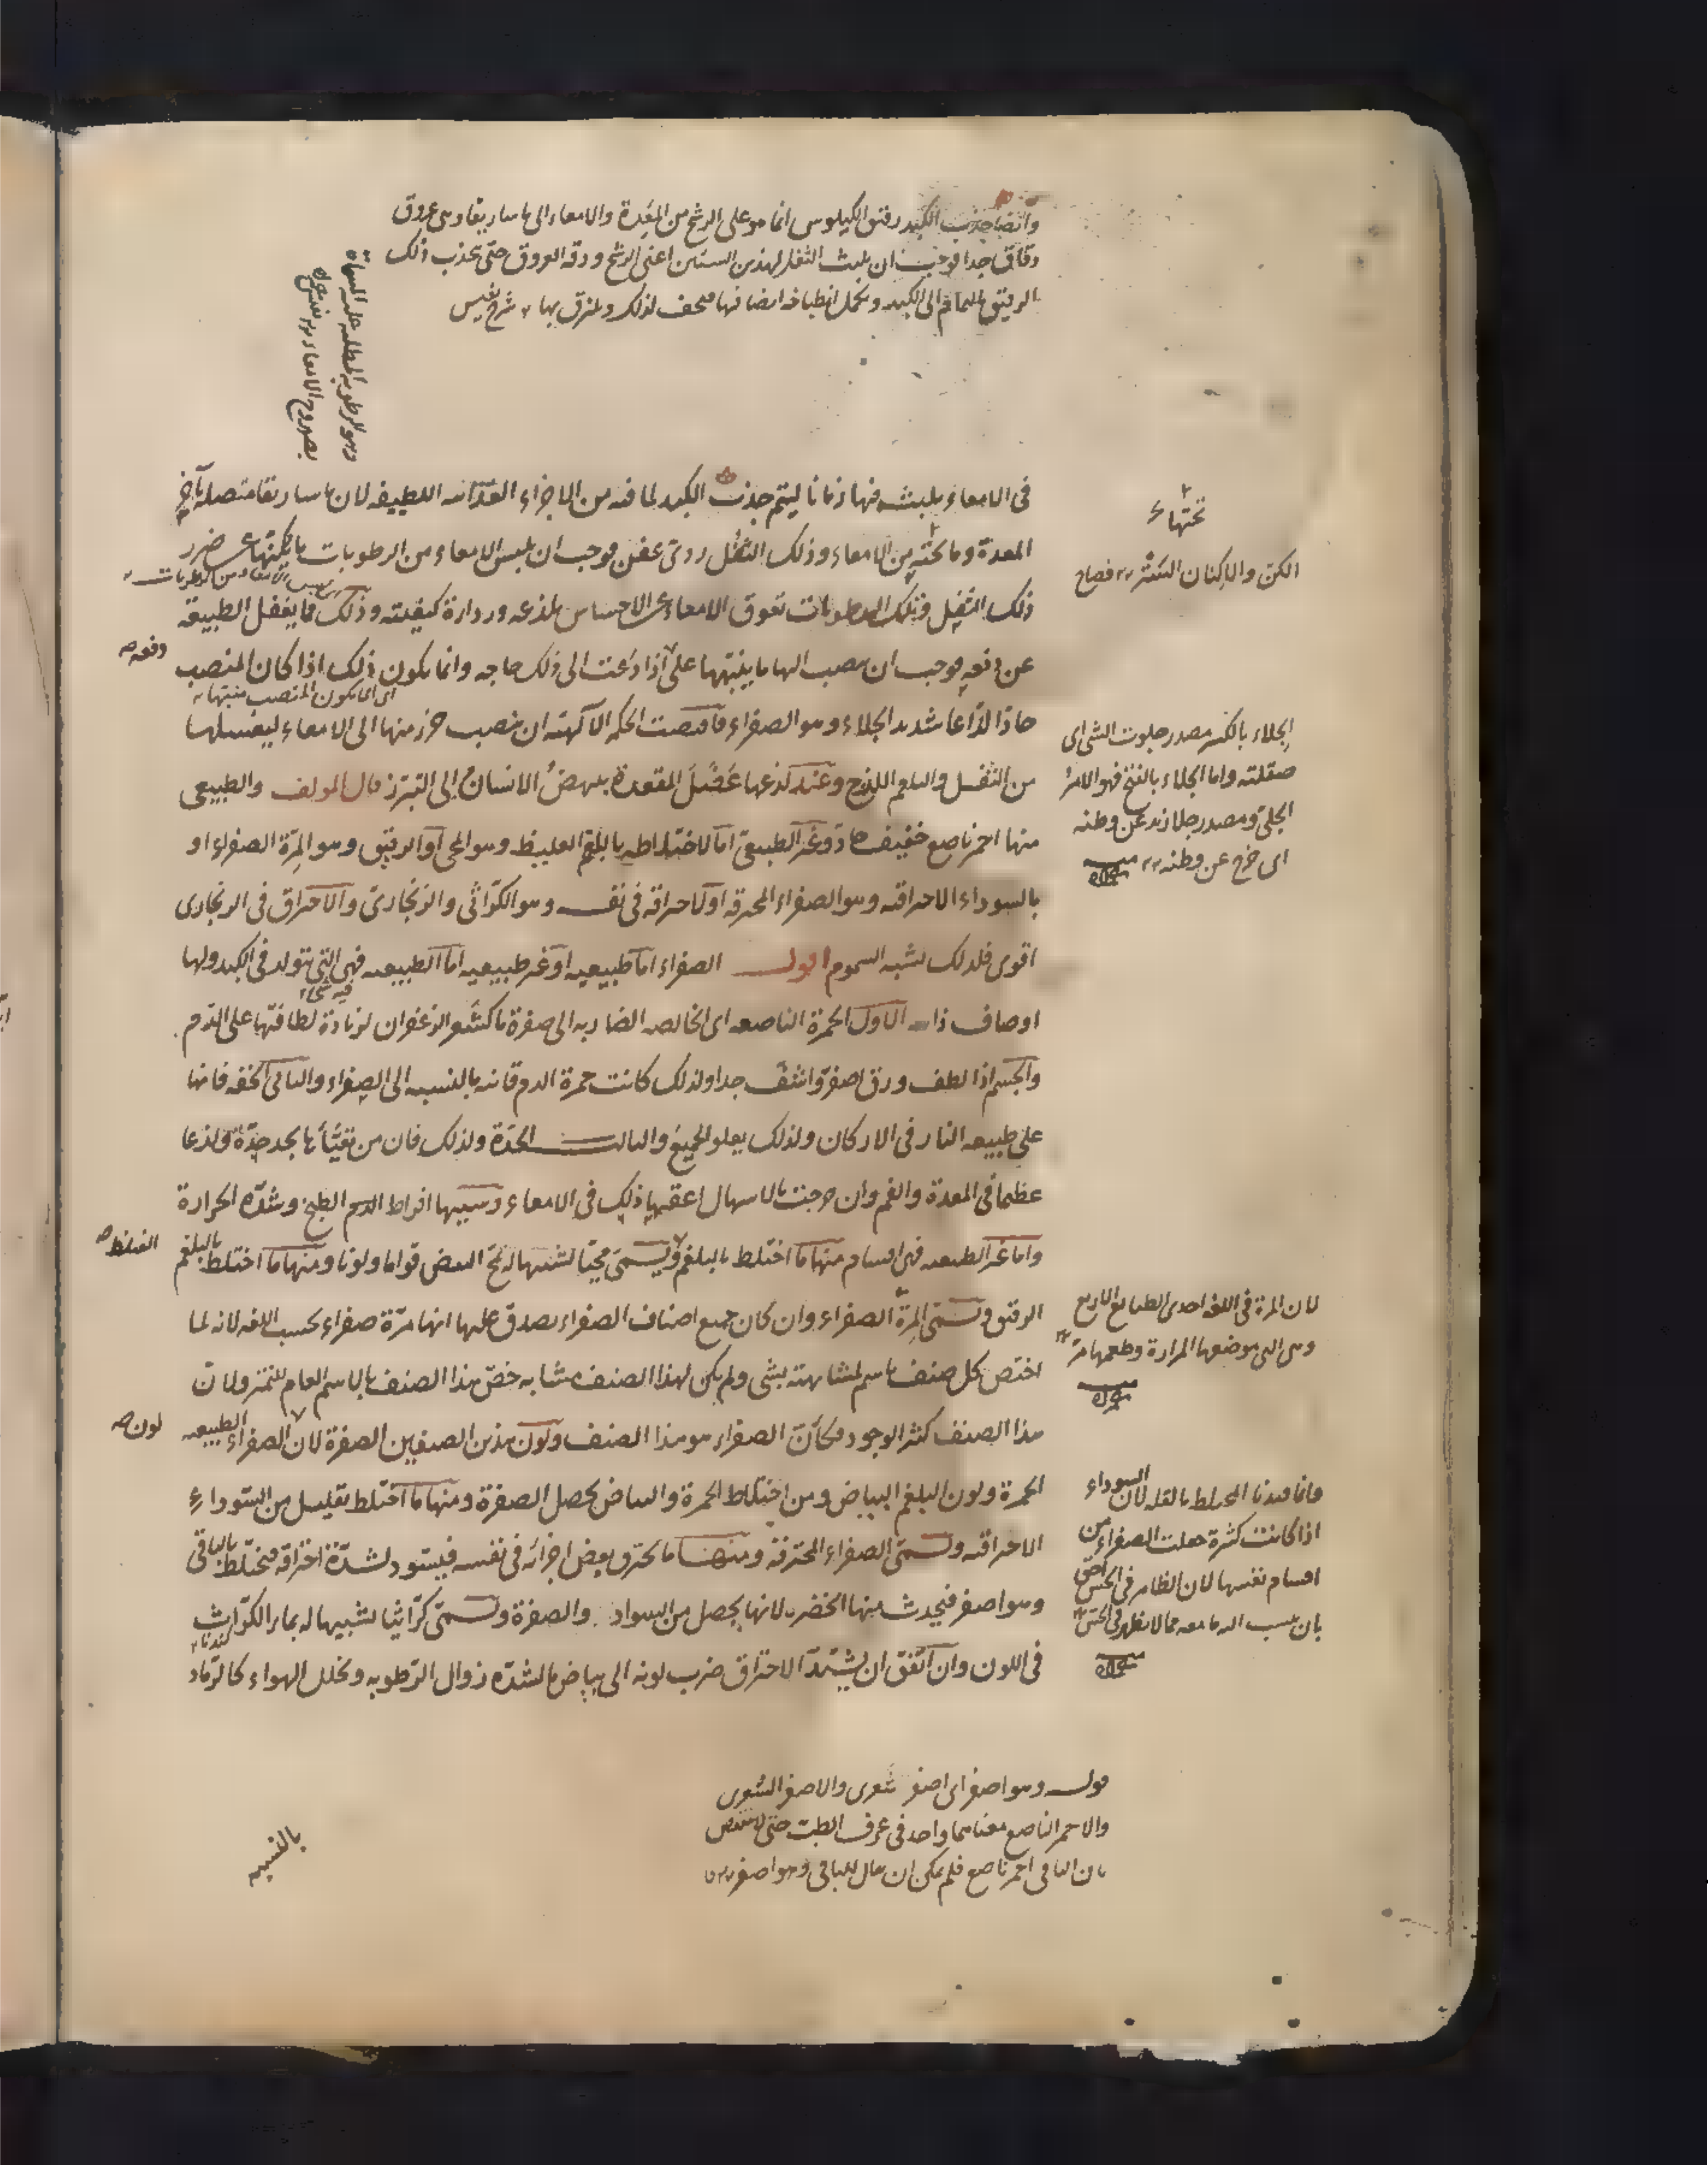 وايضا جذب الكبد رقيق الكيلوس انما هو على الرشح من المعدة والامعاء الى ماساريقا وهى عروق
دقاق جدا فوجب ان يلبث الثفل لهذين السببين اعنى الرشح ودقة العروق حتى تجذب ذلك
الرقيق بالتمام الى الكبد ويكمل انطباخه ايضا فيها فيجف لذلك ويلزق بها شرح نفيس
وهو الرطوبة المطلية عليه المسماة
بصهروج الامعاء
فى الامعاء ويلبث فيها زمانا ليتم جذب الكبد لما فيه من الاجزاء الغذائية اللطيفة لان ماساريقا متصلة بآخر
المعدة وما تحته من الامعاء وذلك الثفل ردى عفن فوجب ان يلبس الامعاء من الرطوبات ما يكنها عن ضرر
ذلك الثفل وتلك الرطوبات تعوق الامعاء عن الاحساس بلذعه ورداءة كيفيته وذلك مما يغفل الطبيعة
عن دفعه فوجب ان ينصب اليها ما ينبهها على اذا دعت الى ذلك حاجة وانما يكون ذلك اذا كان المنصب
دفعه صح
اى انما يكون المنصب منبها
حادا لذاعا شديد الجلاء وهو الصفراء فاقتضت الحكمة الالهية ان ينصب جزء منها الى الامعاء ليغسلها
من الثفل والبلغم اللزج وعند لذعها عضل المقعدة ينهض الانسان الى التبرز قال المولف والطبيعى
منها احمر ناصع خفيف حاد وغير الطبيعى اما لاختلاطه بالبلغم الغليظ وهو المحى او الرقيق وهو المرة الصفراء او
بالسوداء الاحتراقية وهو الصفراء المحترقة او لاحتراقه فى نفسه وهو الكراثى والزنجارى والاحتراق فى الزنجارى
اقوى فلذلك يشبه السموم اقول الصفراء اما طبيعية او غير طبيعية اما الطبيعية فهى التى تتولد فى الكبد ولها
اوصاف الاول الحمرة الناصعة اى الخالصة الضاربة الى صفرة ما كشعر الزعفران لزيادة لطافتها على الدم
والجسم اذا لطف ورق اصفر واشف جدا ولذلك كانت حمرة الدم قانية بالنسبة الى الصفراء والثانى الخفة فانها
على طبيعة النار فى الاركان ولذلك يعلو الجميع والثالث الحدة ولذلك فان من تقيأ بها يجد حدة ولذعا
عظيما فى المعدة والفم وان خرجت بالاسهال اعقبها ذلك فى الامعاء وسببها افراط الطبخ وشدة الحرارة
واما غير الطبيعية فهى اقسام منها ما اختلط بالبلغم ويسمى محيا لشبهها له بمح البيض قواما ولونا ومنها ما اختلط بالبلغم
الغليظ صح
الرقيق ويسمى المرة الصفراء وان كان جميع اصناف الصفراء يصدق عليها انها مرة صفراء بحسب اللغة لانه لما
اختص كل صنف باسم لمشابهته بشى ولم يكن لهذا الصنف مشابه خص هذا الصنف بالاسم العام للتميز ولان
هذا الصنف كثير الوجود فكان الصفراء هو هذا الصنف ولون هذين الصنفين الصفرة لان الصفراء الطبيعية
لون صح
الحمرة ولون البلغم البياض ومن اختلاط الحمرة والبياض يحصل الصفرة ومنها ما اختلط بقليل من السوداء
الاحتراقية ويسمى الصفراء المحترقة ومنها ما يحترق بعض اجزائه فى نفسه فيسود لشدة احتراقه فيختلط بالباقى
وهو اصفر فيحدث منها الخضرة لانها يحصل من السواد والصفرة ويسمى كراثيا لشبهها له بماء الكراث
فى اللون وان اتفق ان يشتد الاحتراق ضرب لونه الى بياض ما لشدة زوال الرطوبة وتخلل الهواء كالرماد
تحتها
الكن والاكنان الستر صحاح
الجلاء بالكسر مصدر جلوت الشى اى
صقلته واما الجلاء بالفتح فهو الامر
الجلى ومصدر جلا زيد عن وطنه
اى خرج عن وطنه
لان المرة فى اللغة احدى الطبايع الاربع
وهى التى موضعها المرارة وطعمها مر
وانما قيدنا المختلط بالقلة لان السوداء
اذا كانت كثيرة جعلت الصفراء من
اقسام نفسها لان الظاهر فى الحس احق
بان ينسب اليه ما معه مما لا يظهر فى الحس
قوله وهو اصفر اى اصفر شعرى والاصفر الشعرى
والاحمر الناصع معناهما واحد فى عرف الطب حتى لا ينتقض
بان الباقى احمر ناصع فلم يمكن ان يقال للباقى وهو اصفر
بالنسبة